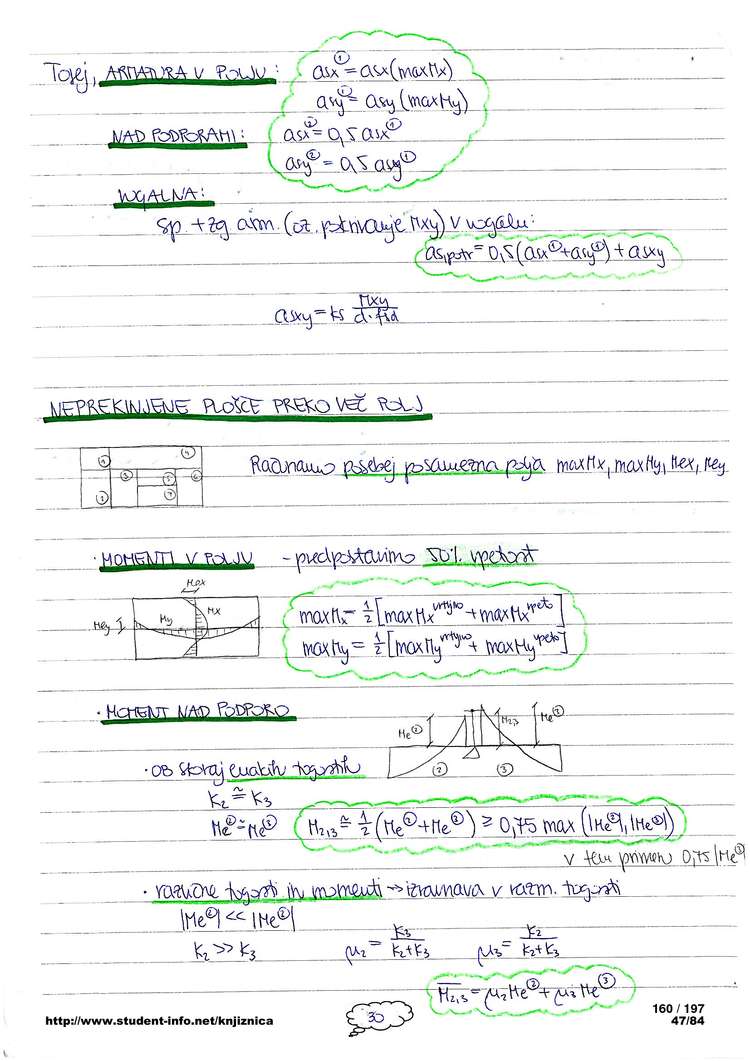 Torej, ARMATURA V POLJU: asx① = asx(maxMx)
asy① = asy(maxMy)
NAD PODPORAMI: asx② = 0,5 asx①
asy② = 0,5 asy①
VOGALNA:
sp. + zg arm. (oz. pokrivanje Mxy) v vogalu:
as,potr = 0,5(asx① + asy①) + asxy
asxy = ks Mxy / d·fid
NEPREKINJENE PLOŠČE PREKO VEČ POLJ
Računamo posebej posamezna polja maxMx, maxMy, Mex, Mey
· MOMENTI V POLJU - predpostavimo 50% vpetost
Mex
Mx
Mey My
maxMx = 1/2 [maxMx vrtljivo + maxMx vpeto]
maxMy = 1/2 [maxMy vrtljivo + maxMy vpeto]
· MOMENT NAD PODPORO
Me② M2,3 Me②
② ③
· ob skoraj enakih togostih
K2 ≅ K3
Me② ≅ Me③ M2,3 ≅ 1/2 (Me② + Me②) ≥ 0,75 max (|Me②|, |Me③|)
v tem primeru 0,75|Me③|
· različne togosti in momenti → izravnava v razm. togosti
|Me②| << |Me②|
K2 >> K3 μ2 = K3 / K2+K3 μ3 = K2 / K2+K3
M2,3 = μ2Me② + μ3Me③
http://www.student-info.net/knjiznica
30
160 / 197
47/84